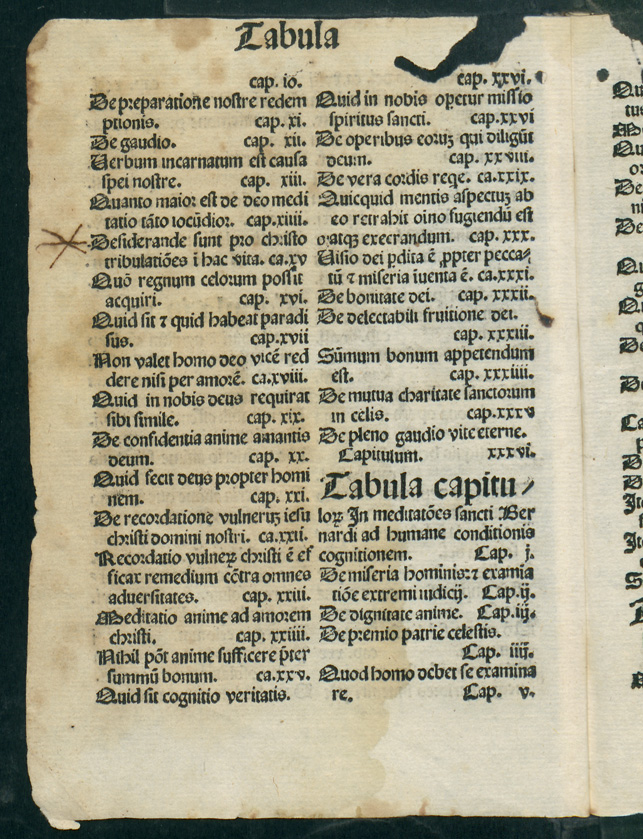 Tabula
cap. io.
De preparatione nostre redem
ptionis. cap. xi.
De gaudio. cap. xii.
Uerbum incarnatum est causa
spei nostre. cap. xiii.
Quanto maior est de deo medi
tatio tāto iocūdior. cap.xiiii.
Desiderande sunt pro christo
tribulatiōes i hac vita. ca.xv
Quō regnum celorum possit
acquiri. cap. xvi.
Quid sit ⁊ quid habeat paradi
sus. cap.xvii
Non valet homo deo vicē red
dere nisi per amorē. ca.xviii.
Quid in nobis deus requirat
sibi simile. cap. xix.
De confidentia anime amantis
deum. cap. xx.
Quid fecit deus propter homi
nem. cap. xxi.
De recordatione vulneruꝫ iesu
christi domini nostri. ca.xxii.
Recordatio vulneꝝ christi ē ef
ficax remedium cōtra omnes
aduersitates. cap. xxiii.
Meditatio anime ad amorem
christi. cap. xxiiii.
Nihil pōt anime sufficere p̄ter
summū bonum. ca.xxv.
Quid sit cognitio veritatis.
cap. xxvi.
Quid in nobis opetur missio
spiritus sancti. cap.xxvi
De operibus eoruꝫ qui diligūt
deum. cap. xxviii.
De vera cordis reqe. ca.xxix.
Quicquid mentis aspectuꝫ ab
eo retrahit oino fugiendū est
atqꝫ execrandum. cap. xxx.
Uisio dei pdita ē ꝓpter pecca
tū ⁊ miseria iuenta ē. ca.xxxi.
De bonitate dei. cap. xxxii.
De delectabili fruitione dei.
cap. xxxiii.
Sūmum bonum appetendum
est. cap. xxxiiii.
De mutua charitate sanctorum
in celis. cap.xxxv
De pleno gaudio vite eterne.
Capitulum. xxxvi.
Tabula capitu⸗
loꝝ In meditatōes sancti Ber
nardi ad humane conditionis
cognitionem. Cap. j.
De miseria hominis:⁊ examia
tiōe extremi iudicij. Cap.ij.
De dignitate anime. Cap.iij.
De premio patrie celestis.
Cap. iiij.
Quod homo debet se examina
re. Cap. v.